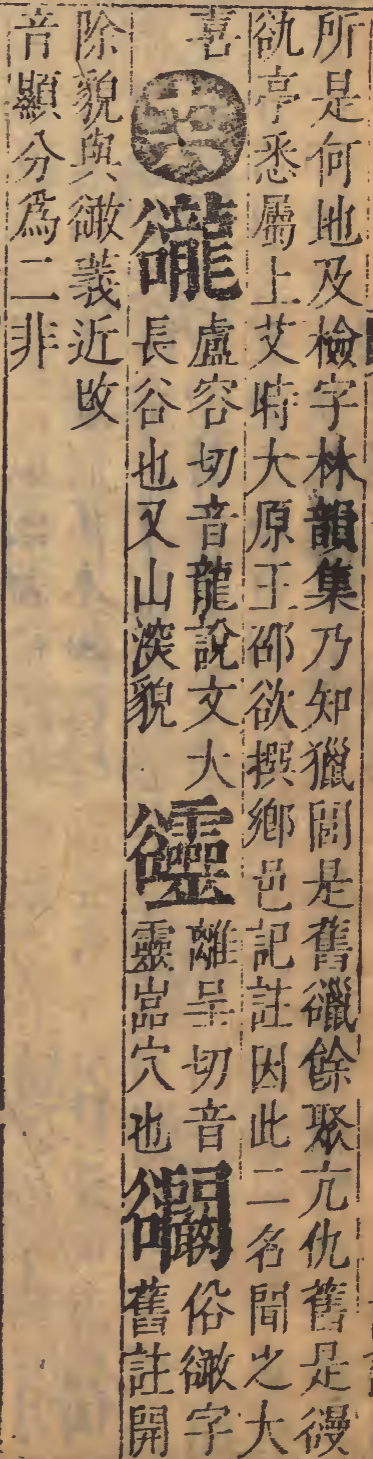 所是何地及檢字林韻集乃知獵閭是舊䜲餘聚亢仇舊是䜱
䜪亭悉屬上艾時大原王邵欲撰鄉邑記註因此二名聞之大
喜
十六
豅
盧容切音龍說文大
長谷也又山深貌
離呈切音
靈嵓穴也
俗豃字
舊註開
除貌與豃義近改
音顯分爲二非